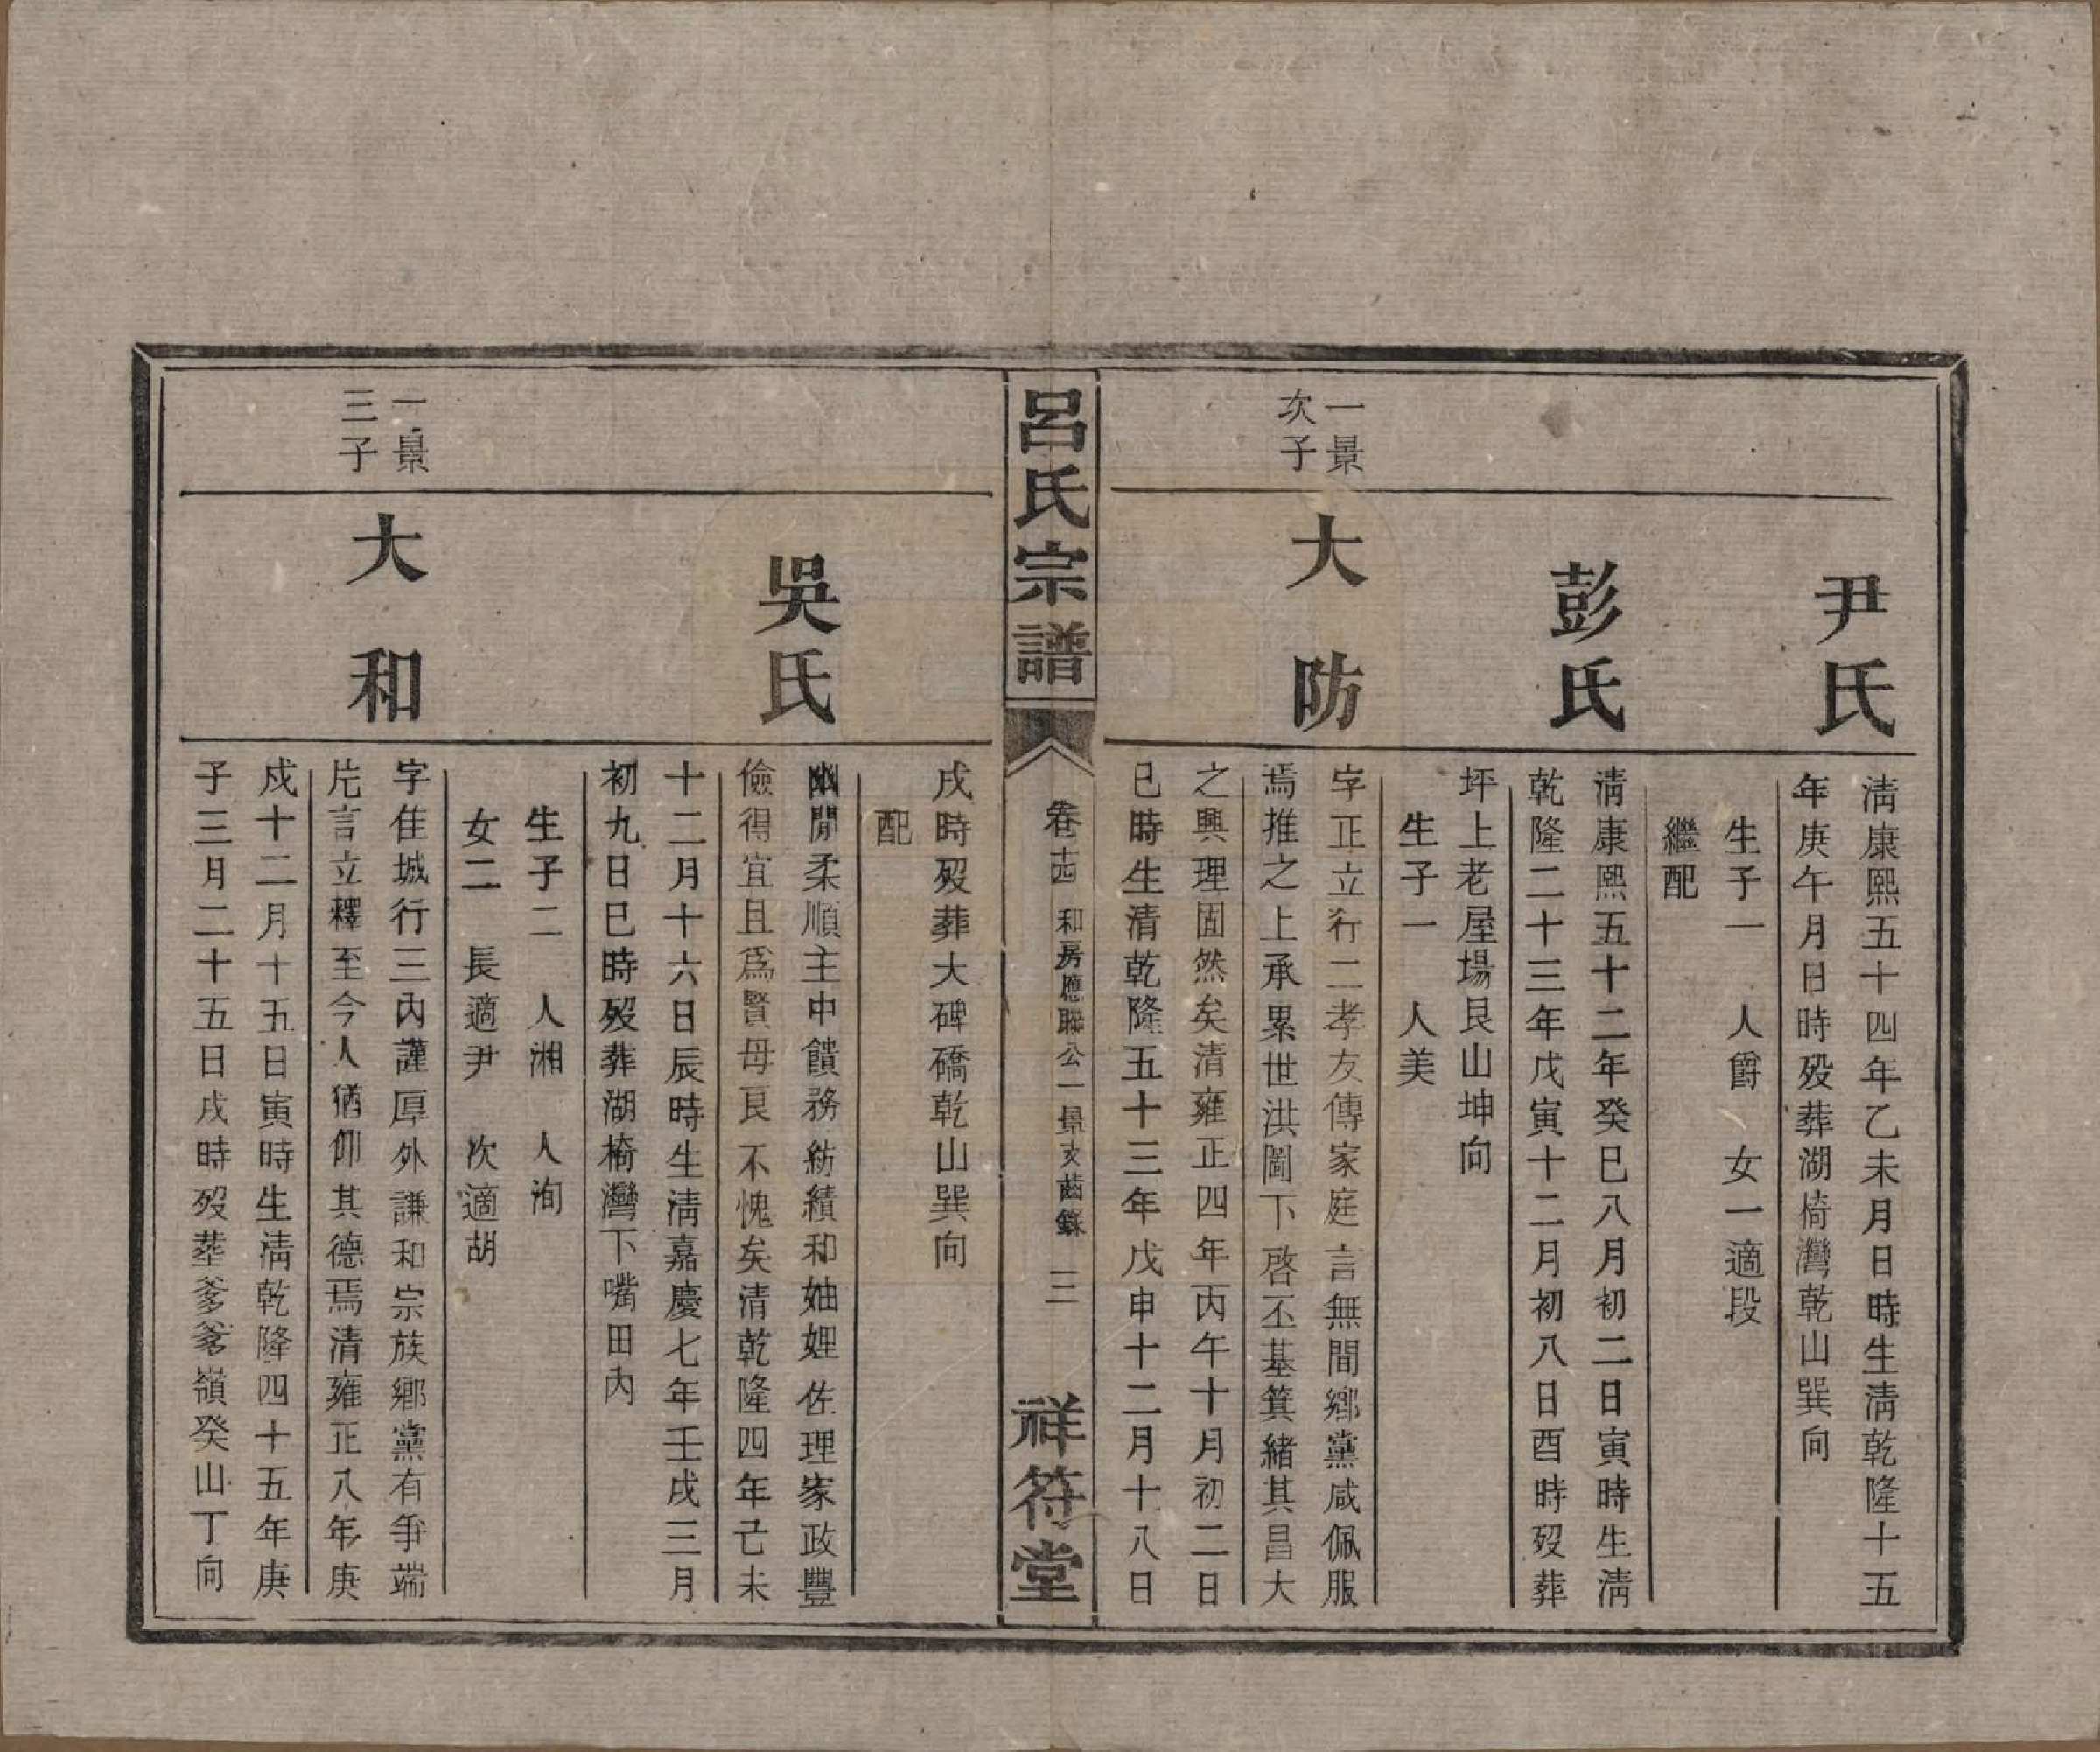 尹氏
清康熙五十四年乙未月日時生清乾隆十五
年庚午月日時歿葬湖椅灣乾山巽向
生子一 人爵 女一適段
繼配
彭氏
清康熙五十二年癸巳八月初二日寅時生清
乾隆二十三年戊寅十二月初八日酉時歿葬
坪上老屋場艮山坤向
生子一 人美
一景
次子
大防
字正立行二孝友傳家庭言無間鄉黨咸佩服
焉推之上承累世洪圖下啓丕基箕緒其昌大
之興理固然矣清雍正四年丙午十月初二日
巳時生清乾隆五十三年戊申十二月十八日
呂氏宗譜
卷十四 和房應聯公一景支齒錄 二
祥符堂
戌時歿葬大碑磽乾山巽向
配
吳氏
幽閒柔順主中饋務紡績和妯娌佐理家政豐
儉得宜且爲賢母良不愧矣清乾隆四年己未
十二月十六日辰時生清嘉慶七年壬戌三月
初九日巳時歿葬湖椅灣下嘴田內
生子二 人湘 人洵
女二 長適尹 次適胡
一景
三子
大和
字佳城行三內謹厚外謙和宗族鄉黨有爭端
片言立釋至今人猶仰其德焉清雍正八年庚
戌十二月十五日寅時生清乾隆四十五年庚
子三月二十五日戌時歿塟爹爹嶺癸山丁向